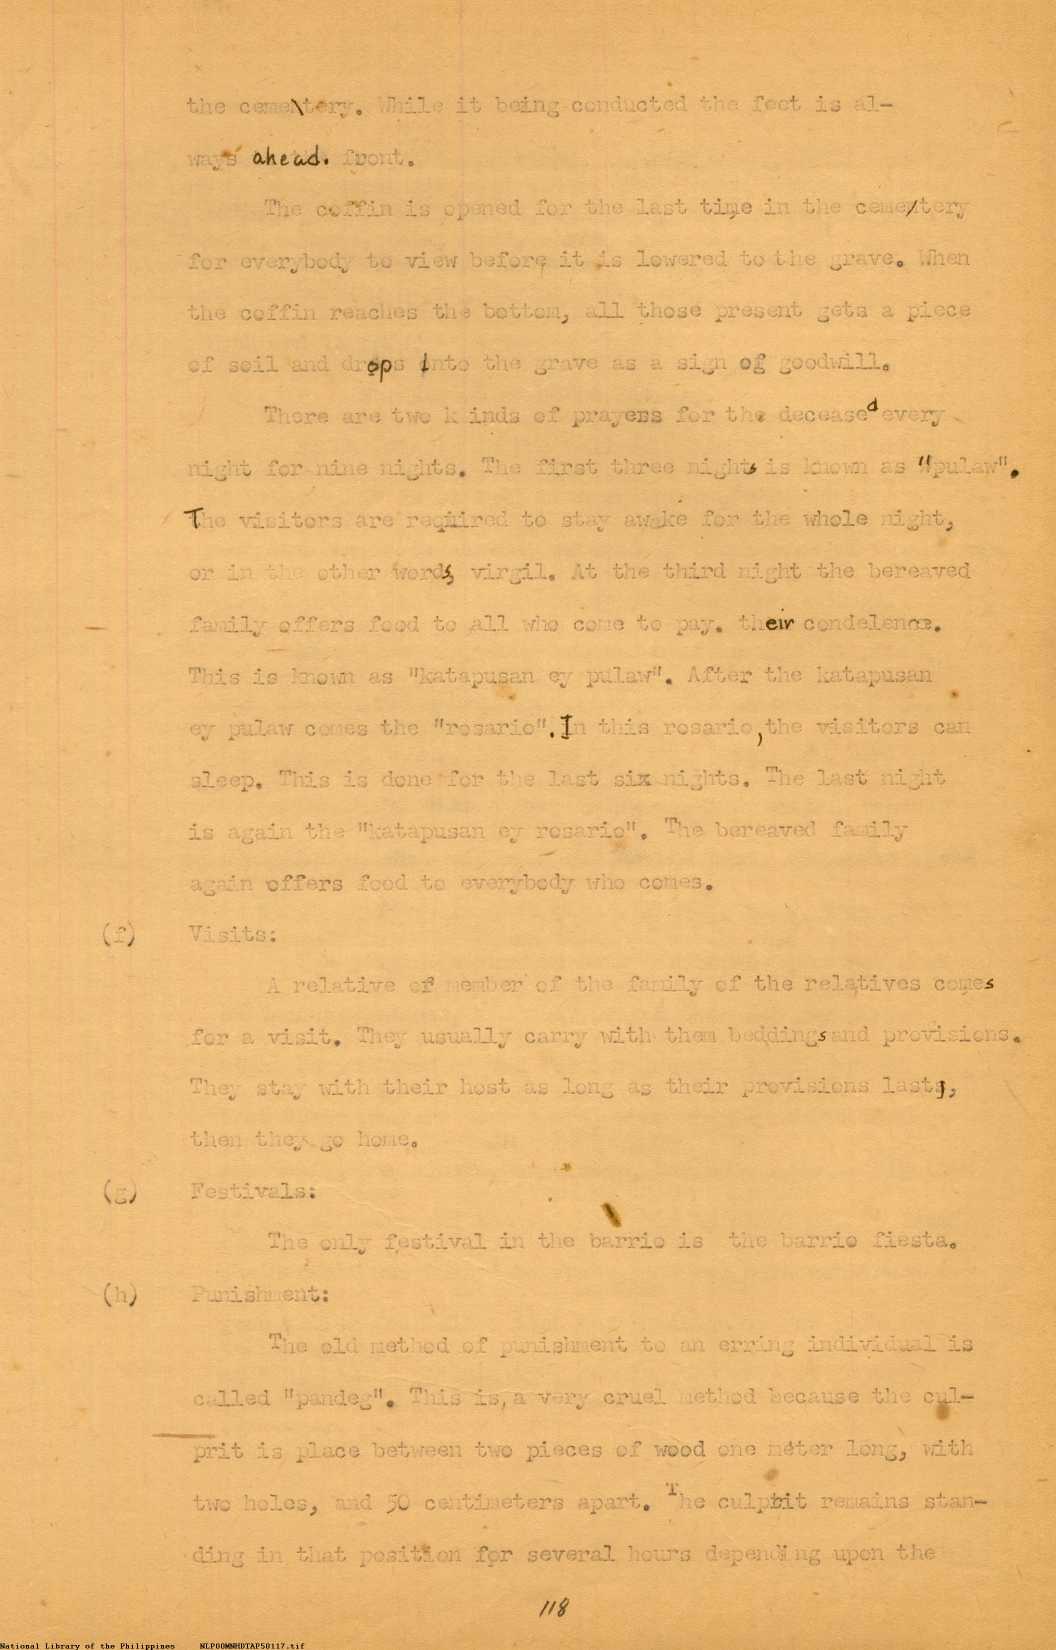 the cemetery. While it being conducted the feet is al-
ways ahead. front.
The coffin is opened for the last time in the cemetery
for everybody to view before it is lowered to the grave. When
the coffin reaches the bottom, all those present gets a piece
of soil and drops into the grave as a sign of goodwill.
There are two k inds of prayers for the deceased every
night for nine nights. The first three nights is known as "pulaw".
The visitors are required to stay awake for the whole night,
or in the other words, virgil. At the third night the bereaved
family offers food to all who come to pay. their condolence.
This is known as "katapusan ey pulaw". After the katapusan
ey pulaw comes the "rosario". In this rosario, the visitors can
sleep. This is done for the last six nights. The last night
is again the "katapusan ey rosario". The bereaved family
again offers food to everybody who comes.
(f) Visits:
A relative of member of the family of the relatives comes
for a visit. They usually carry with them beddings and provisions.
They stay with their host as long as their provisions lasts,
then they go home.
(g) Festivals:
The only festival in the barrio is the barrio fiesta.
(h) Punishment:
The old method of punishment to an erring individual is
called "pandeg". This is, a very cruel method because the cul-
prit is place between two pieces of wood one meter long, with
two holes, and 50 centimeters apart. The culprit remains stan-
ding in that position for several hours depending upon the
118
National Library of the Philippines NLPOOMNHDTAP50117.tif